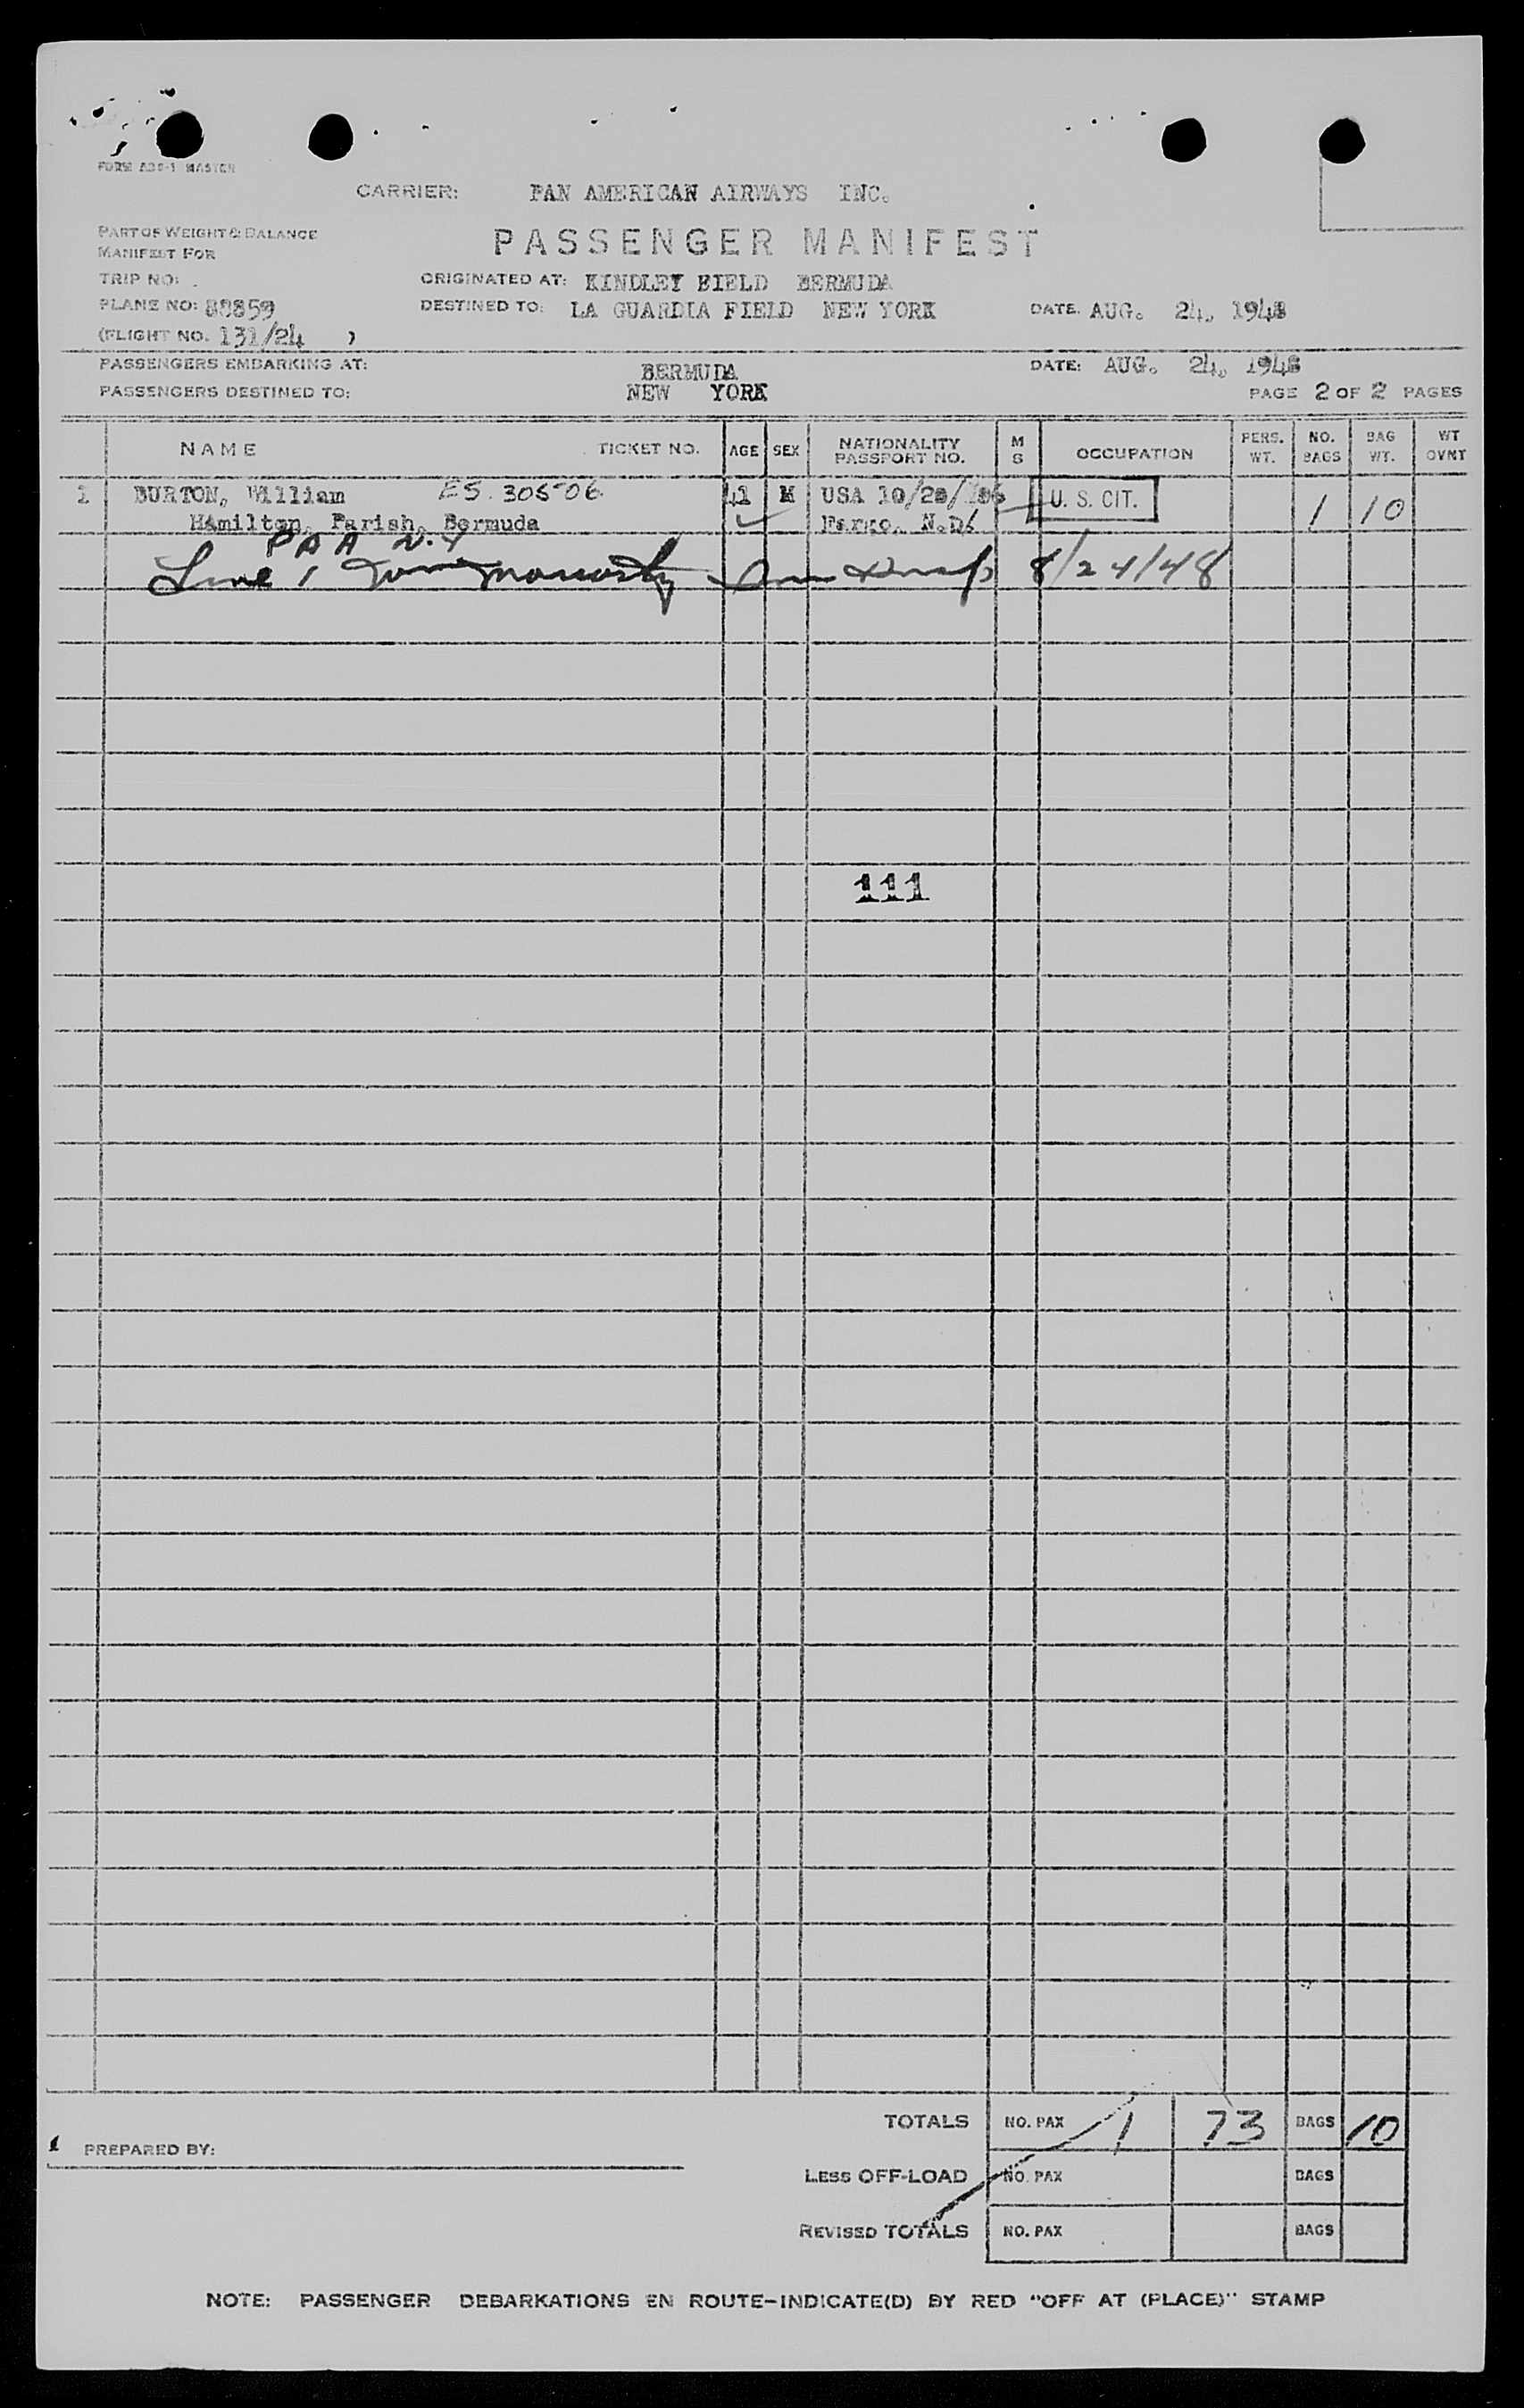 FORM MASTER
CARRIER: PAN AMERICAN AIRWAYS INC.
PASSENGER MANIFEST
PART OF WEIGHT & BALANCE
MANIFEST FOR
TRIP NO:
ORIGINATED AT: KINDLEY FIELD BERMUDA
PLANE NO: 88859
DESTINED TO: LA GUARDIA FIELD NEW YORK DATE. AUG. 24, 1948
(FLIGHT NO. 131/24 )
PASSENGERS EMBARKING AT: BERMUDA DATE: AUG. 24, 1948
PASSENGERS DESTINED TO: NEW YORK PAGE 2 OF 2 PAGES
NAME TICKET NO. AGE SEX NATIONALITY PASSPORT NO. M S OCCUPATION PERS. WT. NO. BAGS BAG WT. WT OVNT
1 BURTON, William ES. 305506 41 M USA U. S. CIT. 1 10
HAmilton, Parish, Bermuda Fargo, N.D.
PAA N.Y
Line 1 8/24/48
111
TOTALS NO. PAX 1 73 BAGS 10
PREPARED BY:
LESS OFF-LOAD NO. PAX BAGS
REVISED TOTALS NO. PAX BAGS
NOTE: PASSENGER DEBARKATIONS EN ROUTE-INDICATE(D) BY RED "OFF AT (PLACE)" STAMP